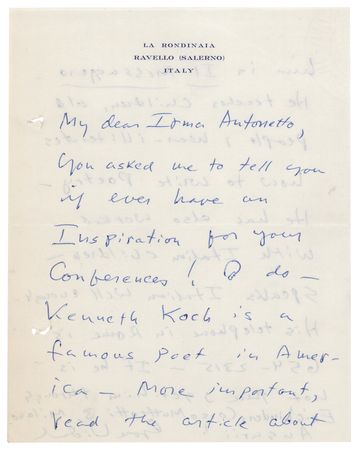 LA RONDINAIA
RAVELLO (SALERNO)
ITALY
My dear Irma Antonetto,
You asked me to tell you
if ever have an
Inspiration for your
Conferences! I do —
Kenneth Koch is a
famous Poet in Amer-
ica — More important,
read the article about